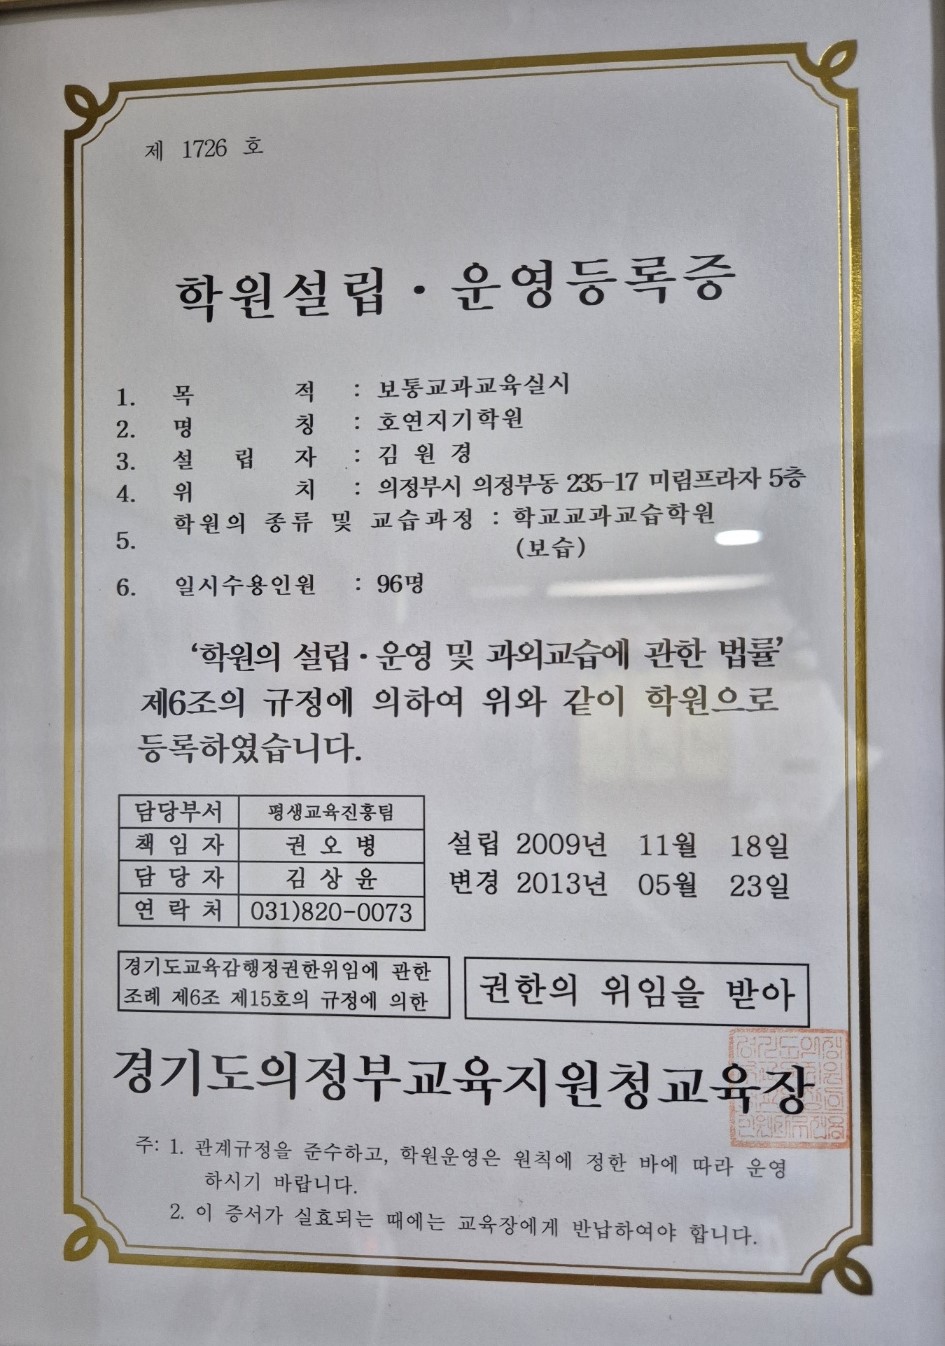 제 1726 호
학원설립·운영등록증
1. 목 적 : 보통교과교육실시
2. 명 칭 : 호연지기학원
3. 설 립 자 : 김 원 경
4. 위 치 : 의정부시 의정부동 235-17 미림프라자 5층
5. 학원의 종류 및 교습과정 : 학교교과교습학원
(보습)
6. 일시수용인원 : 96명
‘학원의 설립·운영 및 과외교습에 관한 법률’
제6조의 규정에 의하여 위와 같이 학원으로
등록하였습니다.
담당부서 평생교육진흥팀
책 임 자 권 오 병
담 당 자 김 상 윤
연 락 처 031)820-0073
설립 2009년 11월 18일
변경 2013년 05월 23일
경기도교육감행정권한위임에 관한
조례 제6조 제15호의 규정에 의한
권한의 위임을 받아
경기도의정부교육지원청교육장
주: 1. 관계규정을 준수하고, 학원운영은 원칙에 정한 바에 따라 운영
하시기 바랍니다.
2. 이 증서가 실효되는 때에는 교육장에게 반납하여야 합니다.